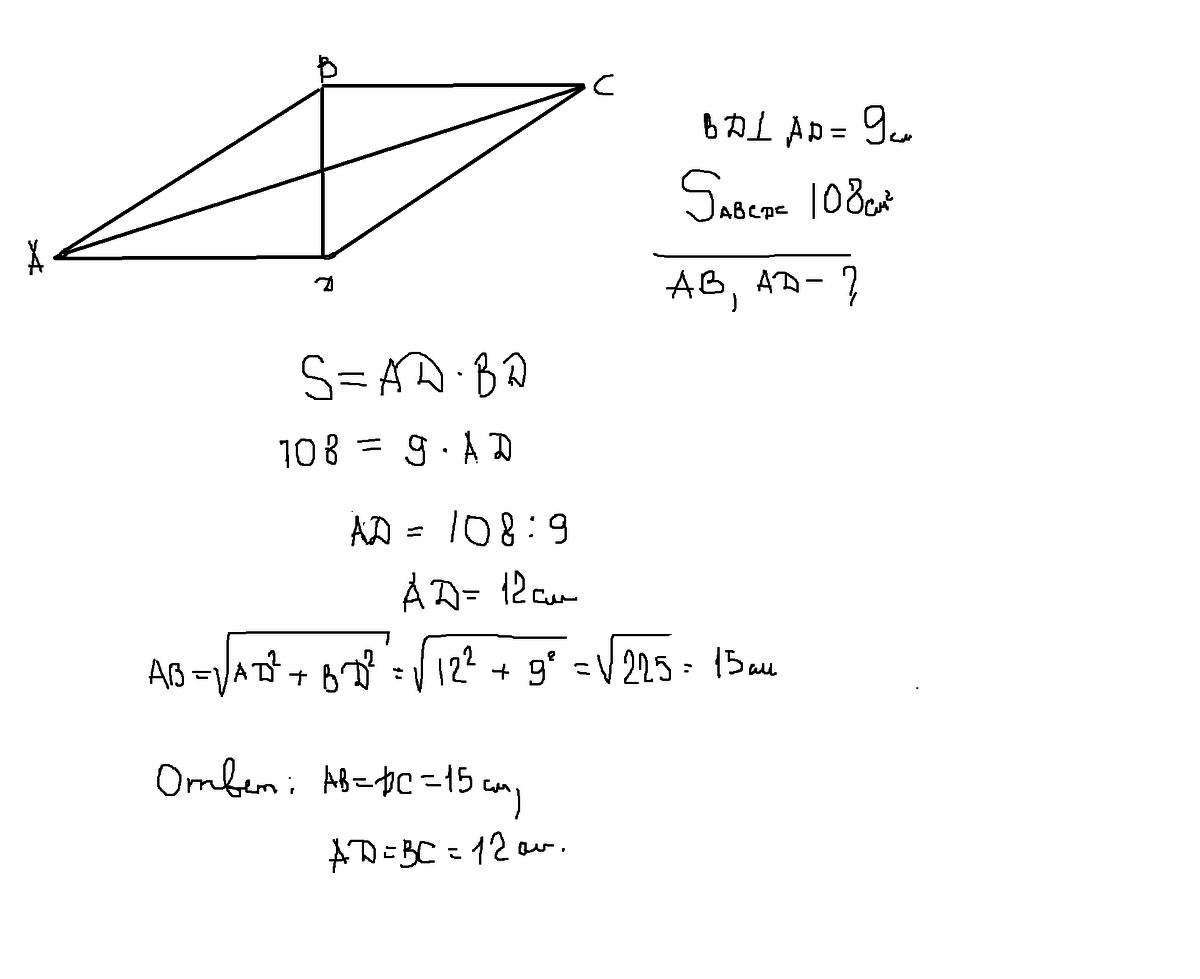 B
C
A
D
BD⊥AD = 9см
S ABCD = 108см²
AB, AD - ?
S = AD · BD
108 = 9 · AD
AD = 108 : 9
AD = 12см
AB = √AD² + BD² = √12² + 9² = √225 = 15см
Ответ: AB = DC = 15см,
AD = BC = 12см.